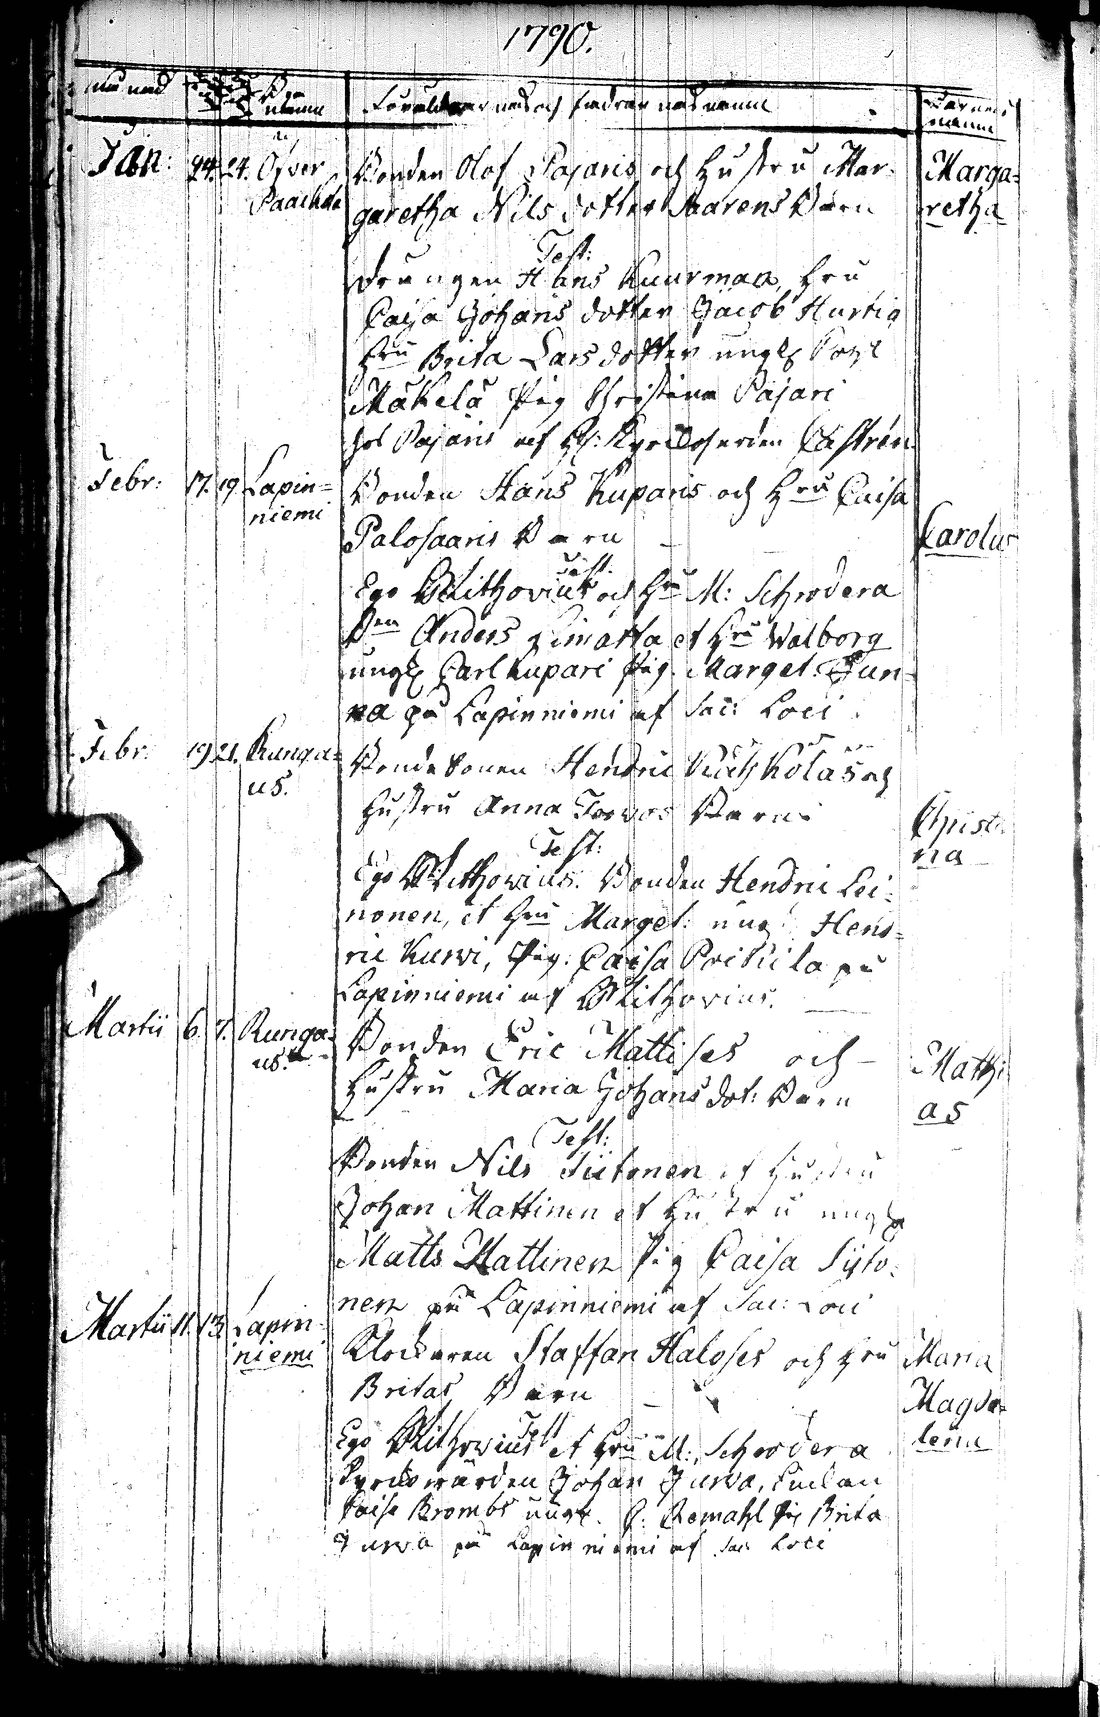 1790.
månad
Föräldrarnas och faddrarnas namn
Barnens
namn
Jan: 24. 24. Öfver
Bonden Olof Pajaris och Hustru Mar-
Marga=
garetha Nils dotter Barn
retha
Test:
Drängen Hans Kuurmaa, Hru
Caisa Johans dotter Jacob Hurtig
Hru Brita Lars dotter ungk
Mäkelä Pig Christina Pajari
hos Pajaris af Castrén
Febr: 17. 19. Lapin=
niemi
Bonden Hans Kuparis och Hru Caisa
Palosaaris Barn
Carolus
Test:
Ego Lithovius och Hru M: Schrodera
Anders et Hru Walborg
ungk Carl Kupari Pig. Marget.
på Lapinniemi af Sac: Loci
Febr. 19 21. Runga=
us.
Bonde Sonen Hendric och
Hustru Anna Barn
Christi
na
Test:
Ego Lithovius. Bonden Hendric Lei-
nonen, et Hru Marget: ung: Hend=
ric Kurvi, Pig: Caisa på
Lapinniemi af Lithovius.
Martii 6. 7. Runga=
us.
Bonden Eric Mattises och
Hustru Maria Johans dot: Barn
Matthi
as
Test:
Bonden Nils Siitonen et Hustru
Johan Mattinen et Hustru ungk
Matts Mattinen Pig Caisa Siito-
nen på Lapinniemi af Sac: Loci
Martii 11. 13. Lapin-
niemi
Klockaren Staffan Haloses och Hru
Maria
Britas Barn
Magda=
lena
Test
Ego Lithovius et Hru M: Schrodera
Kyrckovärden Johan Jurva,
Caisa Brombs ungk. Pig Brita
Jurva på Lapinniemi af Sac: Loci